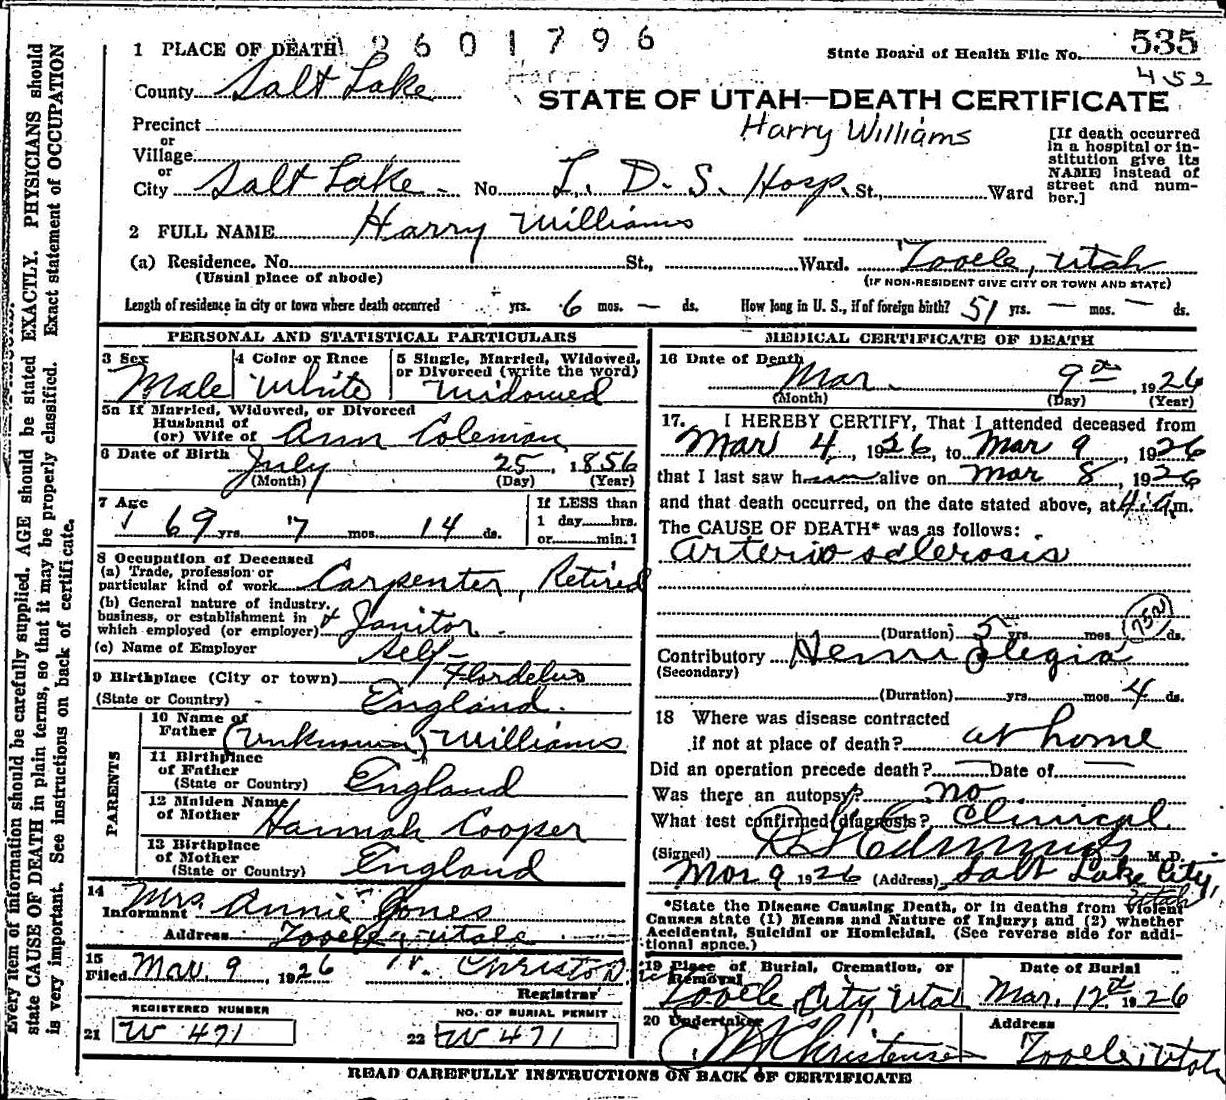 2601796
State Board of Health File No. 535
452
1 PLACE OF DEATH
County Salt Lake
STATE OF UTAH—DEATH CERTIFICATE
Harry Williams
Precinct
or
Village
or
City Salt Lake No. L. D. S. Hosp. St., Ward
[If death occurred in a hospital or institution give its NAME instead of street and number.]
2 FULL NAME Harry Williams
(a) Residence. No. St., Ward. Tooele, Utah
(Usual place of abode) (IF NON-RESIDENT GIVE CITY OR TOWN AND STATE)
Length of residence in city or town where death occurred yrs. 6 mos. — ds. How long in U. S., if of foreign birth? 51 yrs. — mos. — ds.
PERSONAL AND STATISTICAL PARTICULARS
3 Sex Male
4 Color or Race White
5 Single, Married, Widowed, or Divorced (write the word) Widowed
5a If Married, Widowed, or Divorced
Husband of
(or) Wife of Ann Coleman
6 Date of Birth July 25, 1856
(Month) (Day) (Year)
7 Age 69 yrs. 7 mos. 14 ds.
If LESS than
1 day hrs.
or min.
8 Occupation of Deceased
(a) Trade, profession or particular kind of work Carpenter, Retired
(b) General nature of industry, business, or establishment in which employed (or employer) & Janitor
(c) Name of Employer Self
9 Birthplace (City or town)
(State or Country) England.
PARENTS
10 Name of Father (Unknown) Williams
11 Birthplace of Father (State or Country) England
12 Maiden Name of Mother Hannah Cooper
13 Birthplace of Mother (State or Country) England
14 Informant Mrs. Annie Jones
Address Tooele, Utah
15 Filed Mar. 9 1926
Registrar
REGISTERED NUMBER
21 W 471
NO. OF BURIAL PERMIT
22 W 471
MEDICAL CERTIFICATE OF DEATH
16 Date of Death Mar. 9th, 1926
(Month) (Day) (Year)
17. I HEREBY CERTIFY, That I attended deceased from
Mar 4, 1926, to Mar 9, 1926
that I last saw him alive on Mar 8, 1926
and that death occurred, on the date stated above, at 4 a.m.
The CAUSE OF DEATH* was as follows:
arterio sclerosis
(Duration) 5 yrs. mos. ds.
Contributory Hemiplegia
(Secondary)
(Duration) yrs. mos. 4 ds.
18 Where was disease contracted
if not at place of death? at home
Did an operation precede death? — Date of —
Was there an autopsy? no
What test confirmed diagnosis? Clinical
(Signed) M. D.
Mar 9 1926 (Address) Salt Lake City,
Utah
*State the Disease Causing Death, or in deaths from Violent Causes state (1) Means and Nature of Injury; and (2) whether Accidental, Suicidal or Homicidal. (See reverse side for additional space.)
19 Place of Burial, Cremation, or Removal Tooele City, Utah
Date of Burial Mar. 12th 1926
20 Undertaker Christensen
Address Tooele, Utah
READ CAREFULLY INSTRUCTIONS ON BACK OF CERTIFICATE
Every item of information should be carefully supplied. AGE should be stated EXACTLY. PHYSICIANS should
state CAUSE OF DEATH in plain terms, so that it may be properly classified. Exact statement of OCCUPATION
is very important. See instructions on back of certificate.